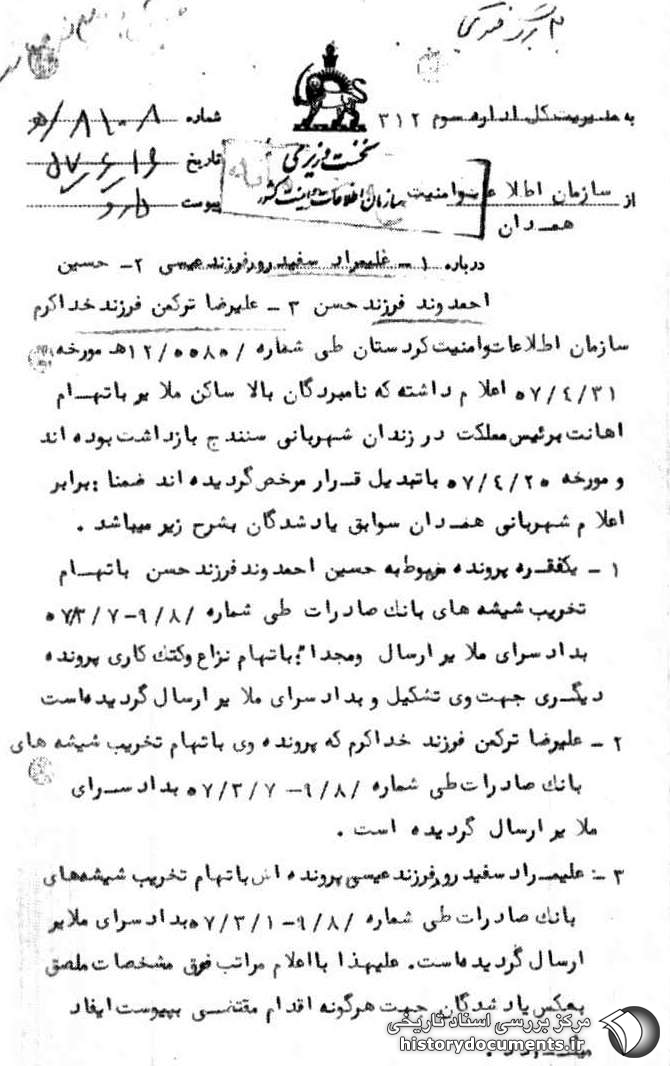 ۲ برگ
به مدیریت کل اداره سوم ۳۱۲
شماره ۸۱۰۰۸/ه
نخست وزیری
تاریخ ۵۷/۶/۱۶
از سازمان اطلاعات وامنیت
سازمان اطلاعات و امنیت کشور
پیوست دارد
همدان
درباره ۱- علیمراد سفیدرو فرزند عیسی ۲- حسین
احمدوند فرزند حسن ۳- علیرضا ترکمن فرزند خداکرم
سازمان اطلاعات وامنیت کردستان طی شماره /۱۲/۵۵۸۵ه مورخه
۵۷/٤/۳۱ اعلام داشته که نامبردگان بالا ساکن ملایر باتهام
اهانت برئیس مملکت در زندان شهربانی سنندج بازداشت بوده اند
و مورخه ۵۷/٤/۲۵ باتبدیل قرار مرخص گردیده اند ضمنا برابر
اعلام شهربانی همدان سوابق یادشدگان بشرح زیر میباشد .
۱- یکفقره پرونده مربوط به حسین احمدوند فرزند حسن باتهام
تخریب شیشه های بانك صادرات طی شماره /۹/۸-۵۷/۳/۷
بدادسرای ملایر ارسال ومجدا" باتهام نزاع وکتك کاری پرونده
دیگری جهت وی تشکیل و بدادسرای ملایر ارسال گردیده است
۲- علیرضا ترکمن فرزند خداکرم که پرونده وی باتهام تخریب شیشه های
بانك صادرات طی شماره /۹/۸-۵۷/۳/۷ بدادسرای
ملایر ارسال گردیده است .
۳- علیمراد سفیدرو فرزند عیسی پرونده اش باتهام تخریب شیشه های
بانك صادرات طی شماره /۹/۸-۵۷/۳/۱ بدادسرای ملایر
ارسال گردیده است. علیهذا بااعلام مراتب فوق مشخصات ملصق
بعکس یادشدگان جهت هرگونه اقدام مقتضی بپیوست ایفاد
میگردد .
مرکز بررسی اسناد تاریخی
historydocuments.ir